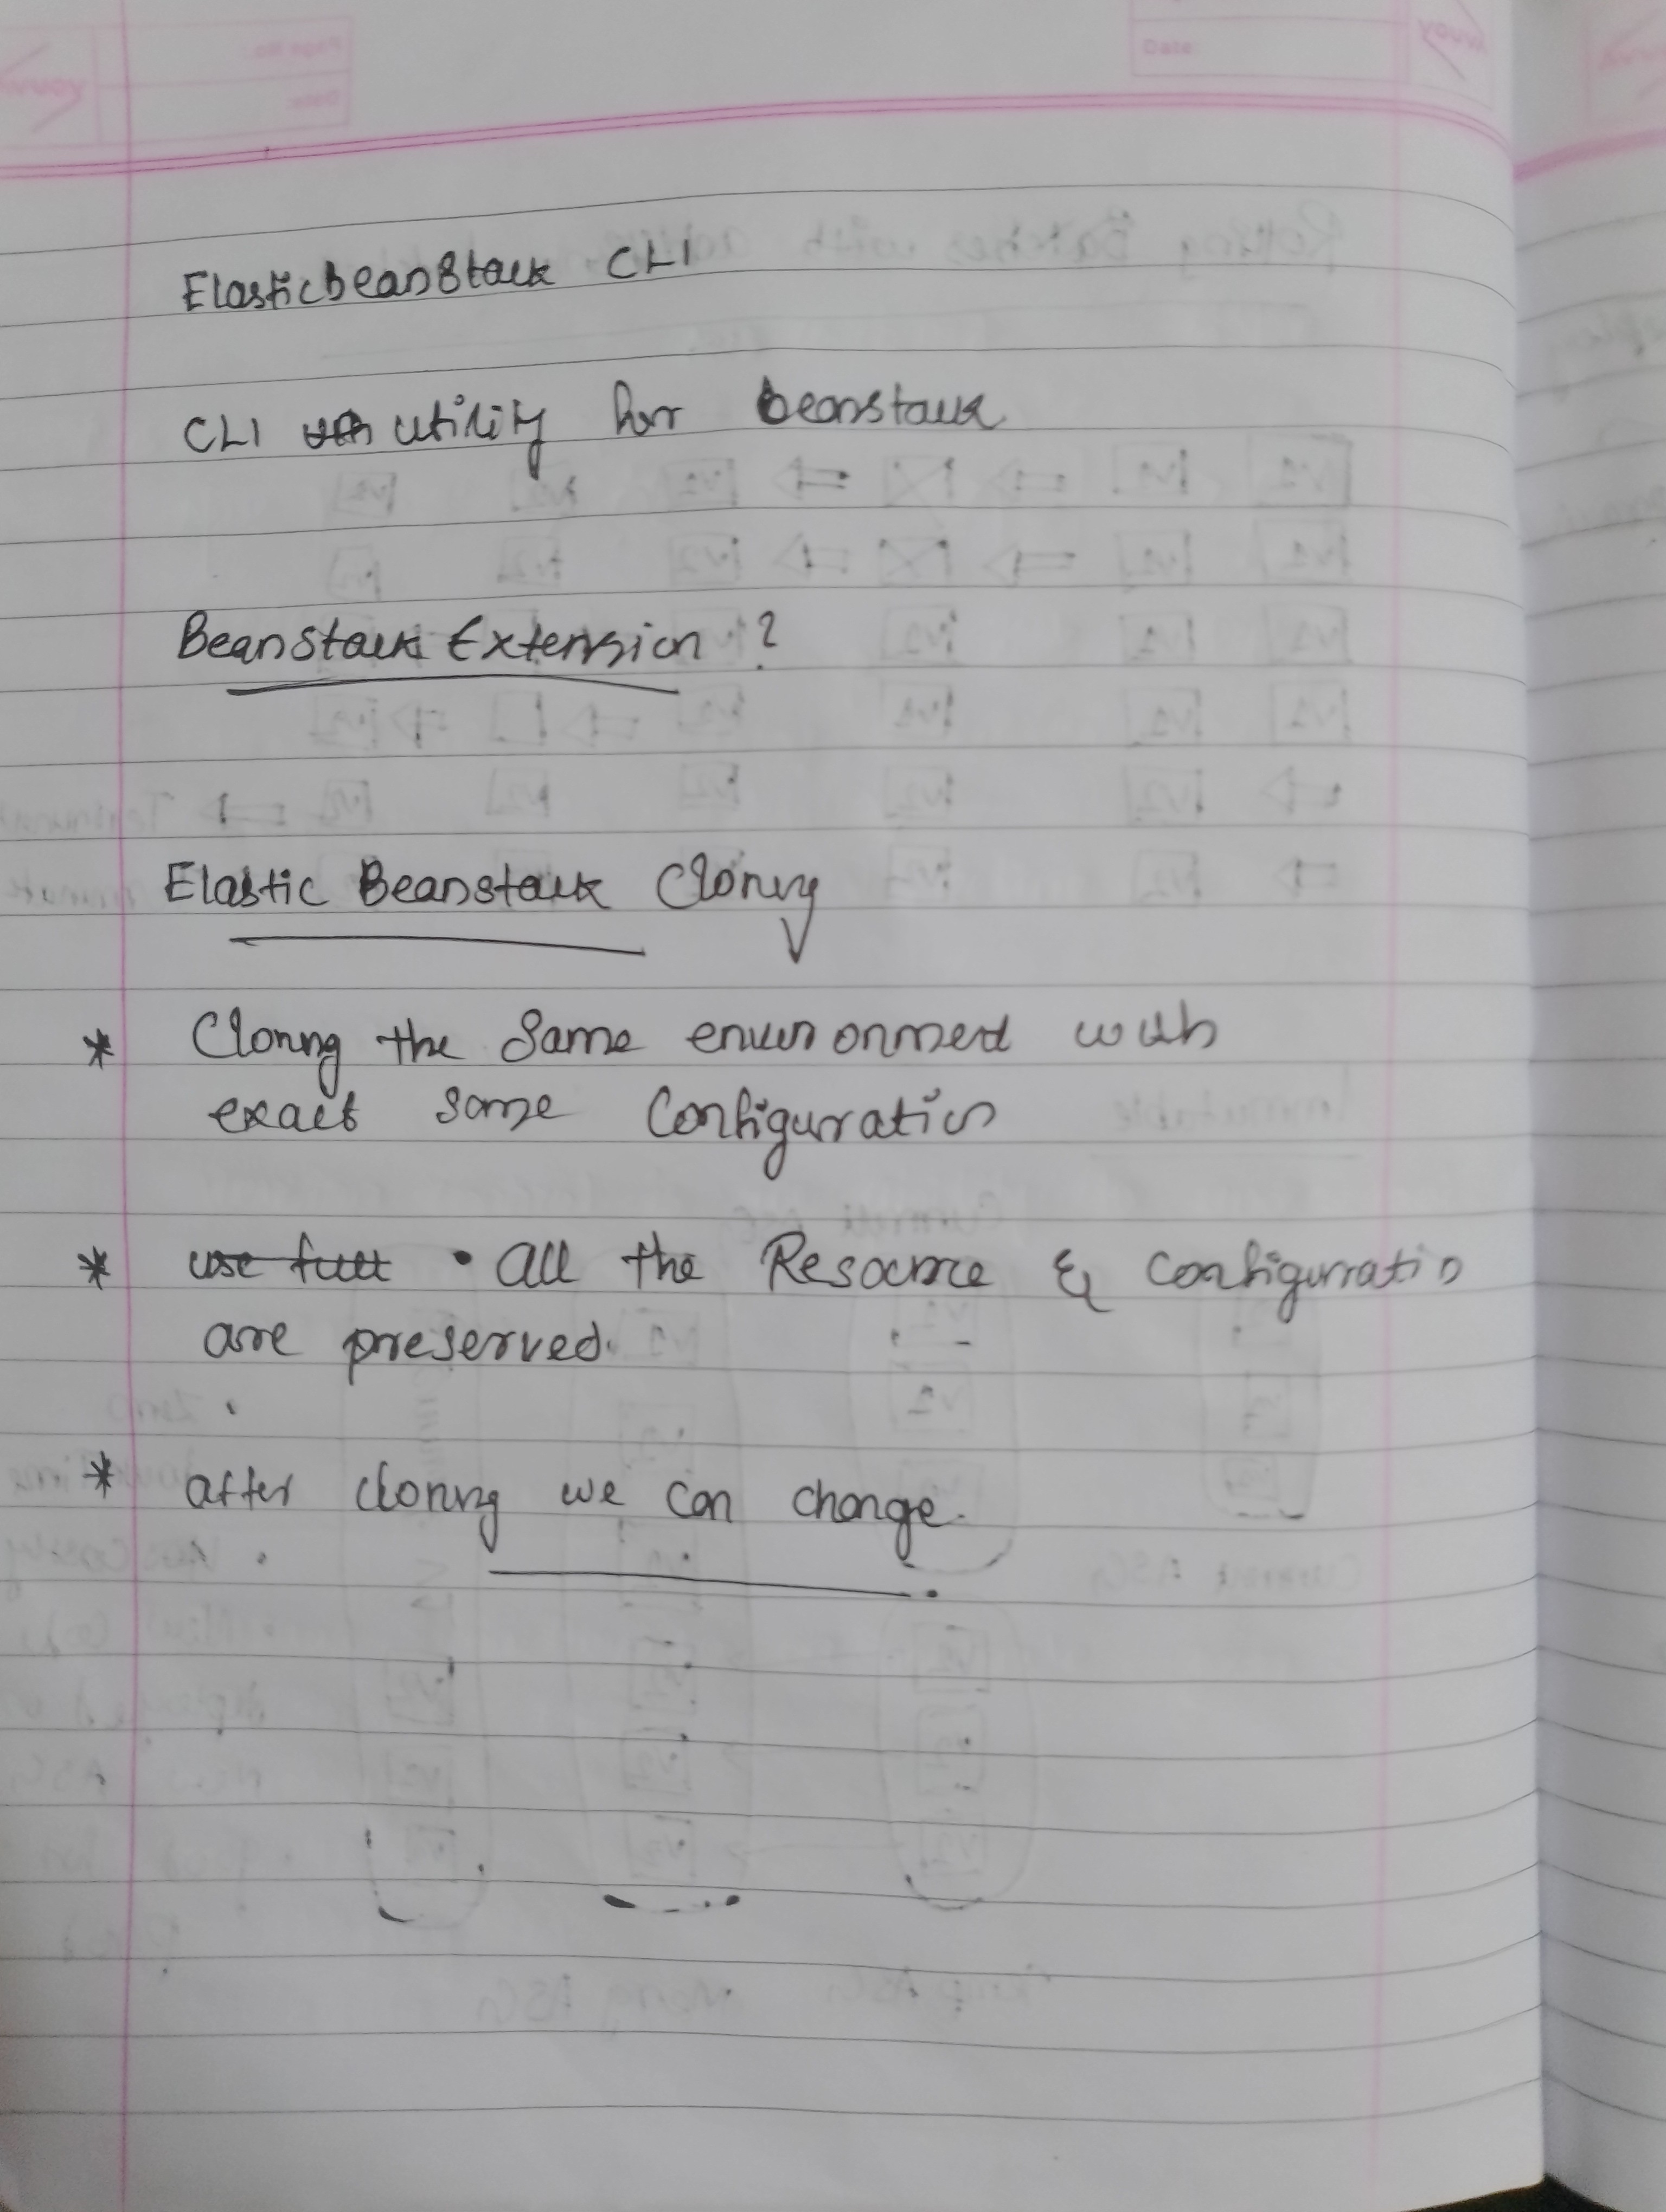 Date:
Elasticbeanstalk CLI
CLI utility for beanstalk
Beanstalk Extension ?
Elastic Beanstalk Cloning
* Cloning the Same environment with
exact same Configuration
* use full • all the Resource & configuratio
are preserved.
* after cloning we can change.